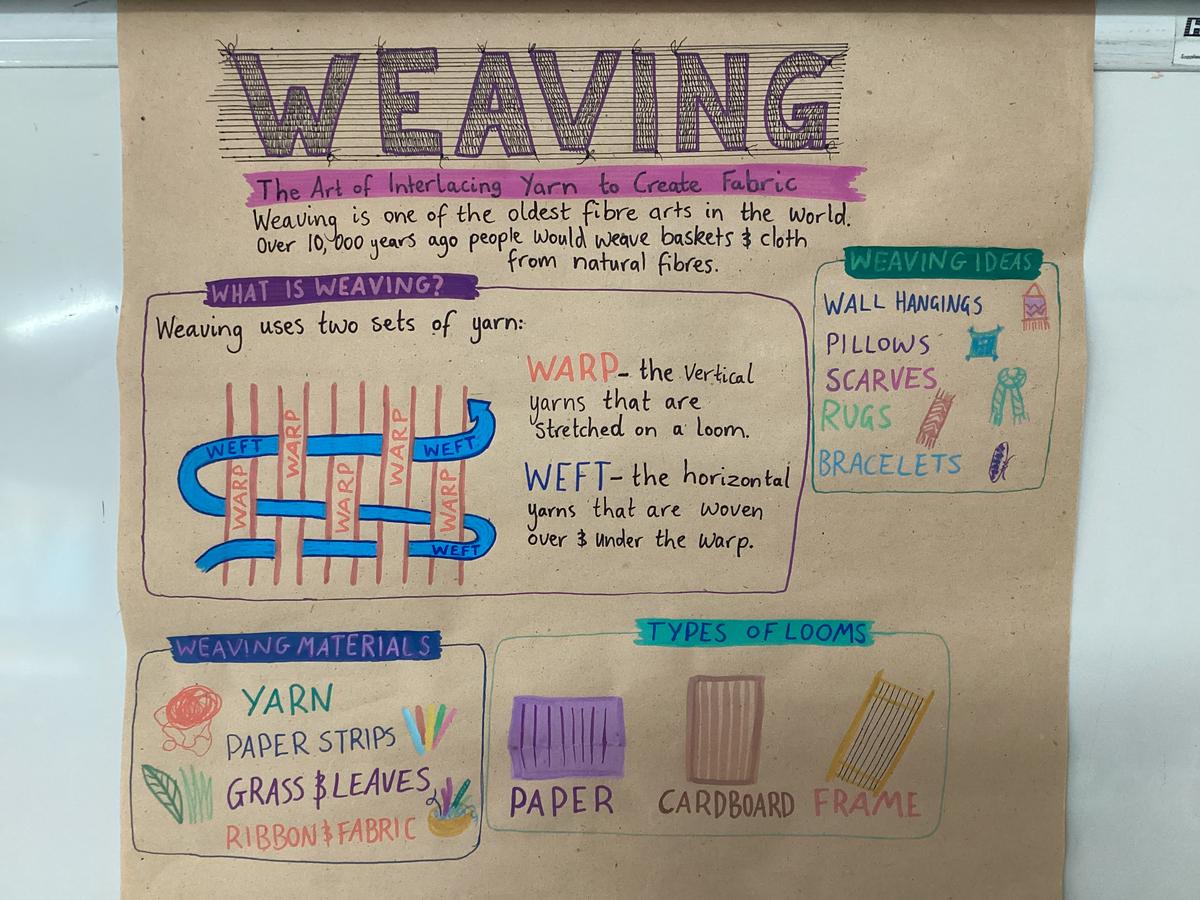 WEAVING
The Art of Interlacing Yarn to Create Fabric
Weaving is one of the oldest fibre arts in the world.
Over 10,000 years ago people would weave baskets & cloth
from natural fibres.
WHAT IS WEAVING?
Weaving uses two sets of yarn:
WARP - the vertical
yarns that are
stretched on a loom.
WEFT - the horizontal
yarns that are woven
over & under the warp.
WEFT
WARP
WARP
WEFT
WARP
WARP
WARP
WEFT
WEAVING IDEAS
WALL HANGINGS
PILLOWS
SCARVES
RUGS
BRACELETS
WEAVING MATERIALS
YARN
PAPER STRIPS
GRASS & LEAVES
RIBBON & FABRIC
TYPES OF LOOMS
PAPER
CARDBOARD
FRAME